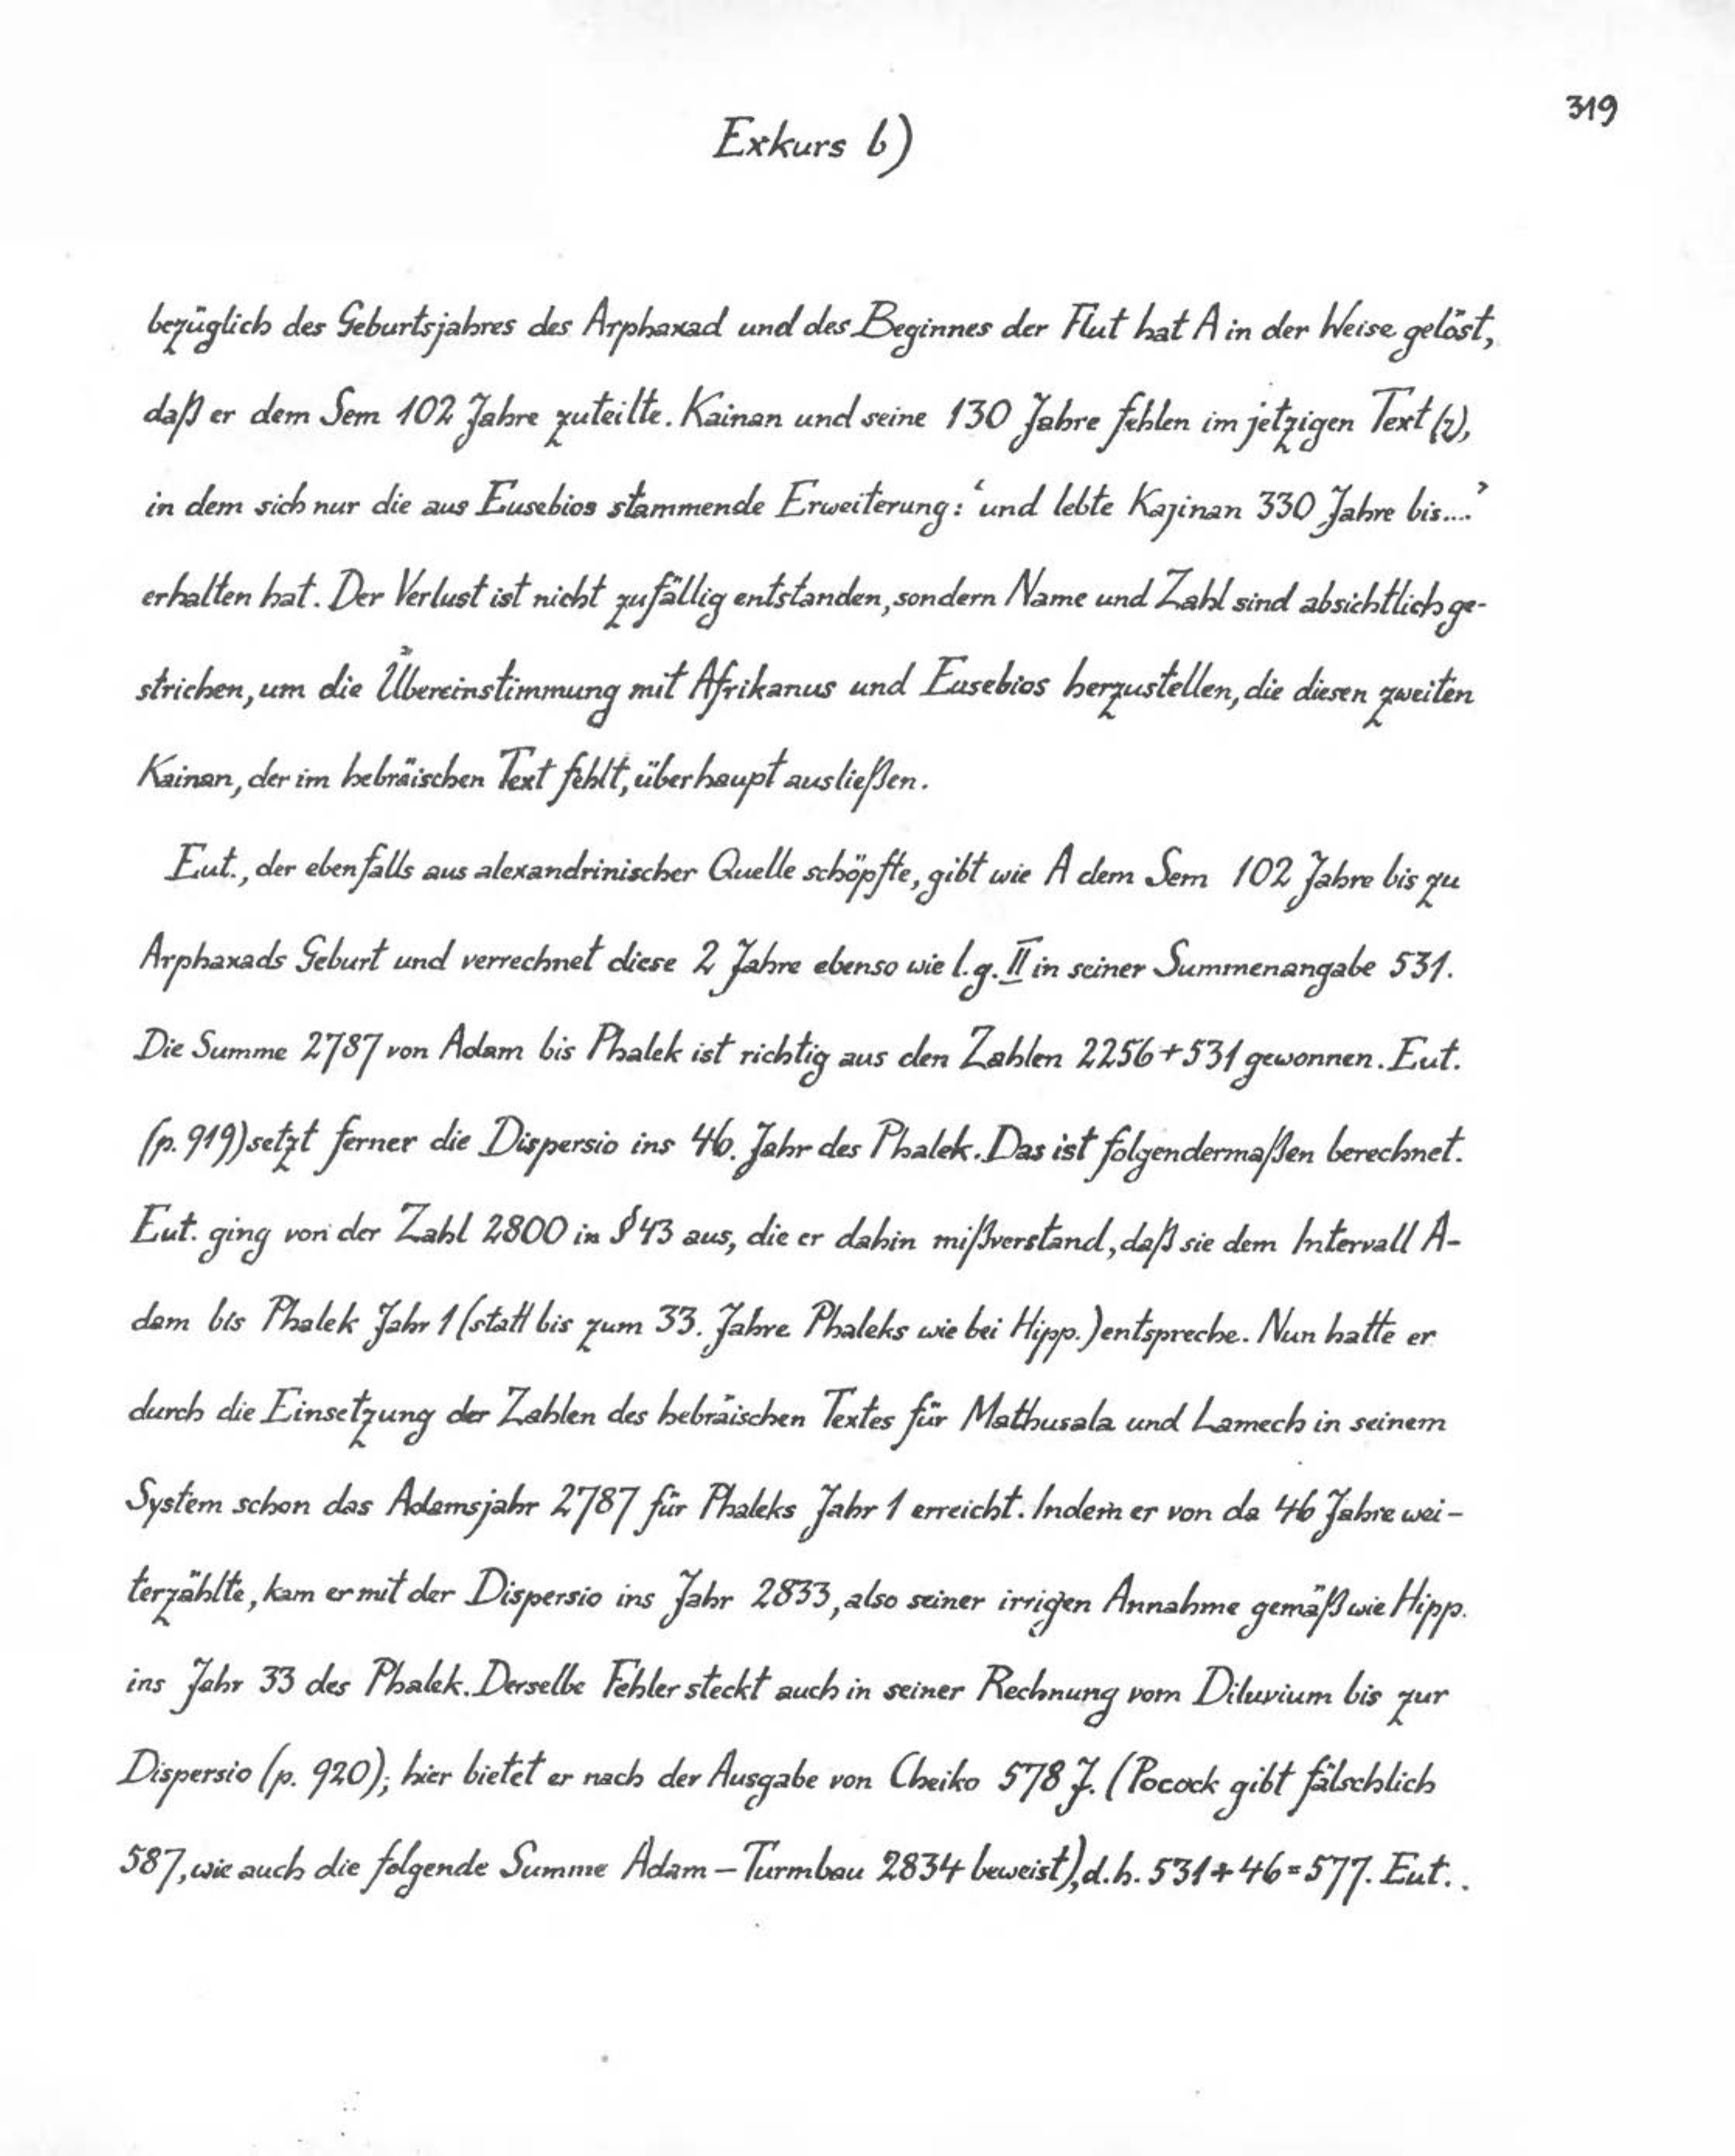 319
Exkurs b)
bezüglich des Geburtsjahres des Arphaxad und des Beginnes der Flut hat A in der Weise gelöst,
daß er dem Sem 102 Jahre zuteilte. Kainan und seine 130 Jahre fehlen im jetzigen Text (γ),
in dem sich nur die aus Eusebios stammende Erweiterung: ‘und lebte Kajinan 330 Jahre bis....’
erhalten hat. Der Verlust ist nicht zufällig entstanden, sondern Name und Zahl sind absichtlich ge-
strichen, um die Übereinstimmung mit Afrikanus und Eusebios herzustellen, die diesen zweiten
Kainan, der im hebräischen Text fehlt, überhaupt ausließen.
Eut., der ebenfalls aus alexandrinischer Quelle schöpfte, gibt wie A dem Sem 102 Jahre bis zu
Arphaxads Geburt und verrechnet diese 2 Jahre ebenso wie l.g. II in seiner Summenangabe 531.
Die Summe 2787 von Adam bis Phalek ist richtig aus den Zahlen 2256+531 gewonnen. Eut.
(p. 919) setzt ferner die Dispersio ins 46. Jahr des Phalek. Das ist folgendermaßen berechnet.
Eut. ging von der Zahl 2800 in § 43 aus, die er dahin mißverstand, daß sie dem Intervall A-
dam bis Phalek Jahr 1 (statt bis zum 33. Jahre Phaleks wie bei Hipp.) entspreche. Nun hatte er
durch die Einsetzung der Zahlen des hebräischen Textes für Mathusala und Lamech in seinem
System schon das Adamsjahr 2787 für Phaleks Jahr 1 erreicht. Indem er von da 46 Jahre wei-
terzählte, kam er mit der Dispersio ins Jahr 2833, also seiner irrigen Annahme gemäß wie Hipp.
ins Jahr 33 des Phalek. Derselbe Fehler steckt auch in seiner Rechnung vom Diluvium bis zur
Dispersio (p. 920); hier bietet er nach der Ausgabe von Cheiko 578 J. (Pocock gibt fälschlich
587, wie auch die folgende Summe Adam – Turmbau 2834 beweist), d.h. 531+46=577. Eut..